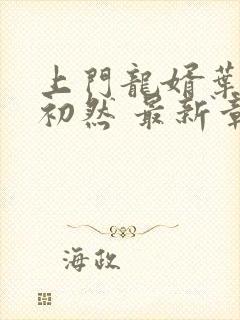 上門龍婿葉
初然 最新章
海政